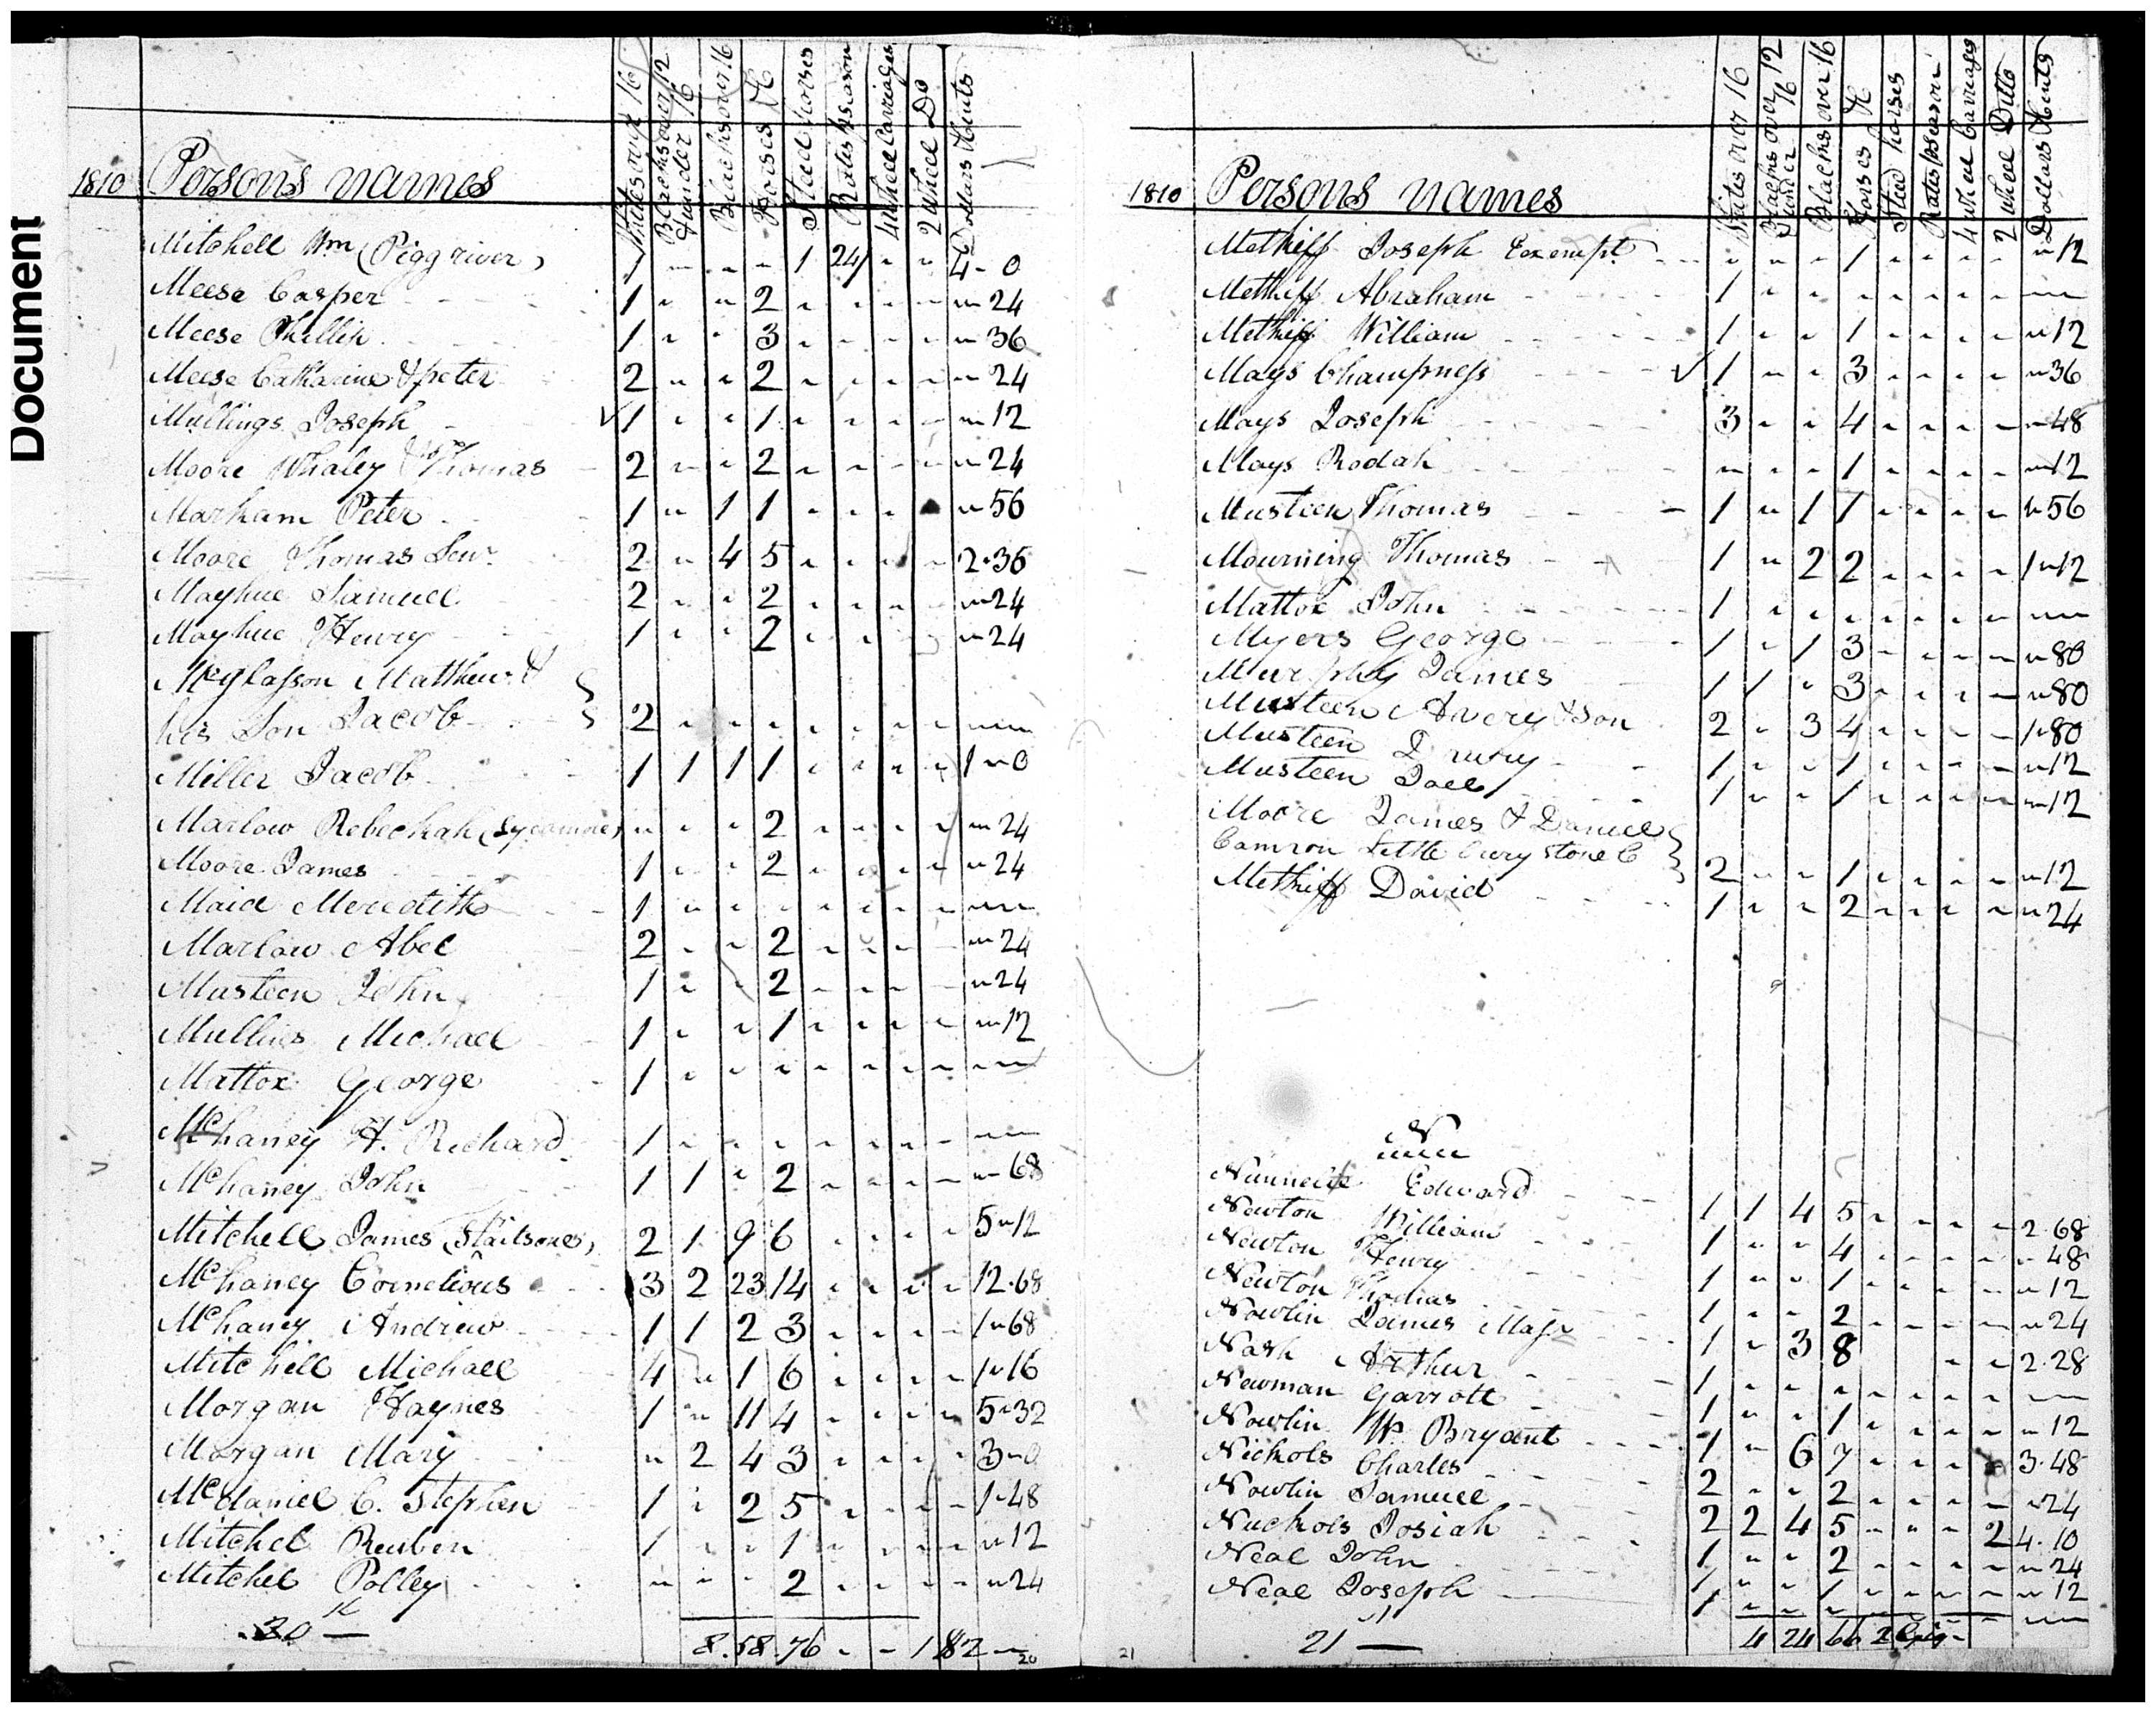 Document
1810 Persons names Whites over 16 Blacks over 12 & under 16 Blacks over 16 Horses &c Stud horses Rates pr season 4 wheel Carriages 2 wheel Do Dollars & Cents
Mitchell Wm (Pigg river) 1 " " " 1 24/ " " 4 " 0
Meese Casper 1 " " 2 " " " " " 24
Meese Phillip 1 " " 3 " " " " " 36
Meese Catharine & peter 2 " " 2 " " " " " 24
Mullings Joseph √ 1 " " 1 " " " " " 12
Moore Whaley & Thomas 2 " " 2 " " " " " 24
Markham Peter 1 " 1 1 " " " " " 56
Moore Thomas Senr 2 " 4 5 " " " " 2.36
Mayhue Samuel 2 " " 2 " " " " " 24
Mayhue Henry 1 " " 2 " " " " " 24
McGlasson Matthew &
his Son Jacob 2 " " " " " " " "
Miller Jacob 1 1 1 1 " " " " 1 " 0
Marlow Rebeckah (Sycamore) " " " 2 " " " " " 24
Moore James 1 " " 2 " " " " " 24
Maid Meredith 1 " " " " " " " "
Marlow Abel 2 " " 2 " " " " " 24
Musteen John 1 " " 2 " " " " " 24
Mullins Michael 1 " " 1 " " " " " 12
Mattox George 1 " " " " " " " "
Mchaney H. Richard 1 " " " " " " " "
Mchaney John 1 1 " 2 " " " " " 68
Mitchell James 2 1 9 6 " " " " 5 " 12
Mchaney Cornelious 3 2 23 14 " " " " 12.68
Mchaney Andrew 1 1 2 3 " " " " 1 " 68
Mitchell Michael 4 " 1 6 " " " " 1 " 16
Morgan Haynes 1 " 11 4 " " " " 5 " 32
Morgan Mary " 2 4 3 " " " " 3 " 0
Mcdaniel C. Stephen 1 " 2 5 " " " " 1 " 48
Mitchel Reuben 1 " " 1 " " " " " 12
Mitchel Polley " " " 2 " " " " " 24
30 — 8.58.76 " " 1 82 —
20
1810 Persons names Whites over 16 Blacks over 12 under 16 Blacks over 16 Horses &c Stud horses Rates pr season 4 wheel Carriages 2 wheel Ditto Dollars & Cents
Methiff Joseph Exempt " " " 1 " " " " " 12
Methiff Abraham 1 " " " " " " " "
Methiff William 1 " " 1 " " " " " 12
Mays Champness √ 1 " " 3 " " " " " 36
Mays Joseph 3 " " 4 " " " " " 48
Mays Rodah " " " 1 " " " " " 12
Musteen Thomas 1 " 1 1 " " " " " 56
Mourning Thomas 1 " 2 2 " " " " 1 " 12
Mattox John 1 " " " " " " " "
Myers George 1 " 1 3 " " " " " 80
Murphy James 1 1 " 3 " " " " " 80
Musteen Avery & Son 2 " 3 4 " " " " 1 " 80
Musteen Drury 1 " " 1 " " " " " 12
Musteen Joel 1 " " 1 " " " " " 12
Moore James & Daniel
Camron 2 " " 1 " " " " " 12
Methiff David 1 " " 2 " " " " " 24
N
Edward 1 1 4 5 " " " " 2.68
Newton William 1 " " 4 " " " " " 48
Newton Henry 1 " " 1 " " " " " 12
Newton Thomas 1 " " 2 " " " " " 24
Nowlin James Majr 1 " 3 8 " " 2.28
Nash Arthur 1 " " " " " " " "
Newman Garrott 1 " " 1 " " " " " 12
Nowlin W Bryant 1 " 6 7 " " " " 3.48
Nichols Charles 2 " " 2 " " " " " 24
Nowlin Samuel 2 2 4 5 " " " 2 4.10
Nuckols Josiah 1 " " 2 " " " " " 24
Neal John 1 " " 1 " " " " " 12
Neal Joseph 1 " " " " " " " "
21 — 4 24 66
21